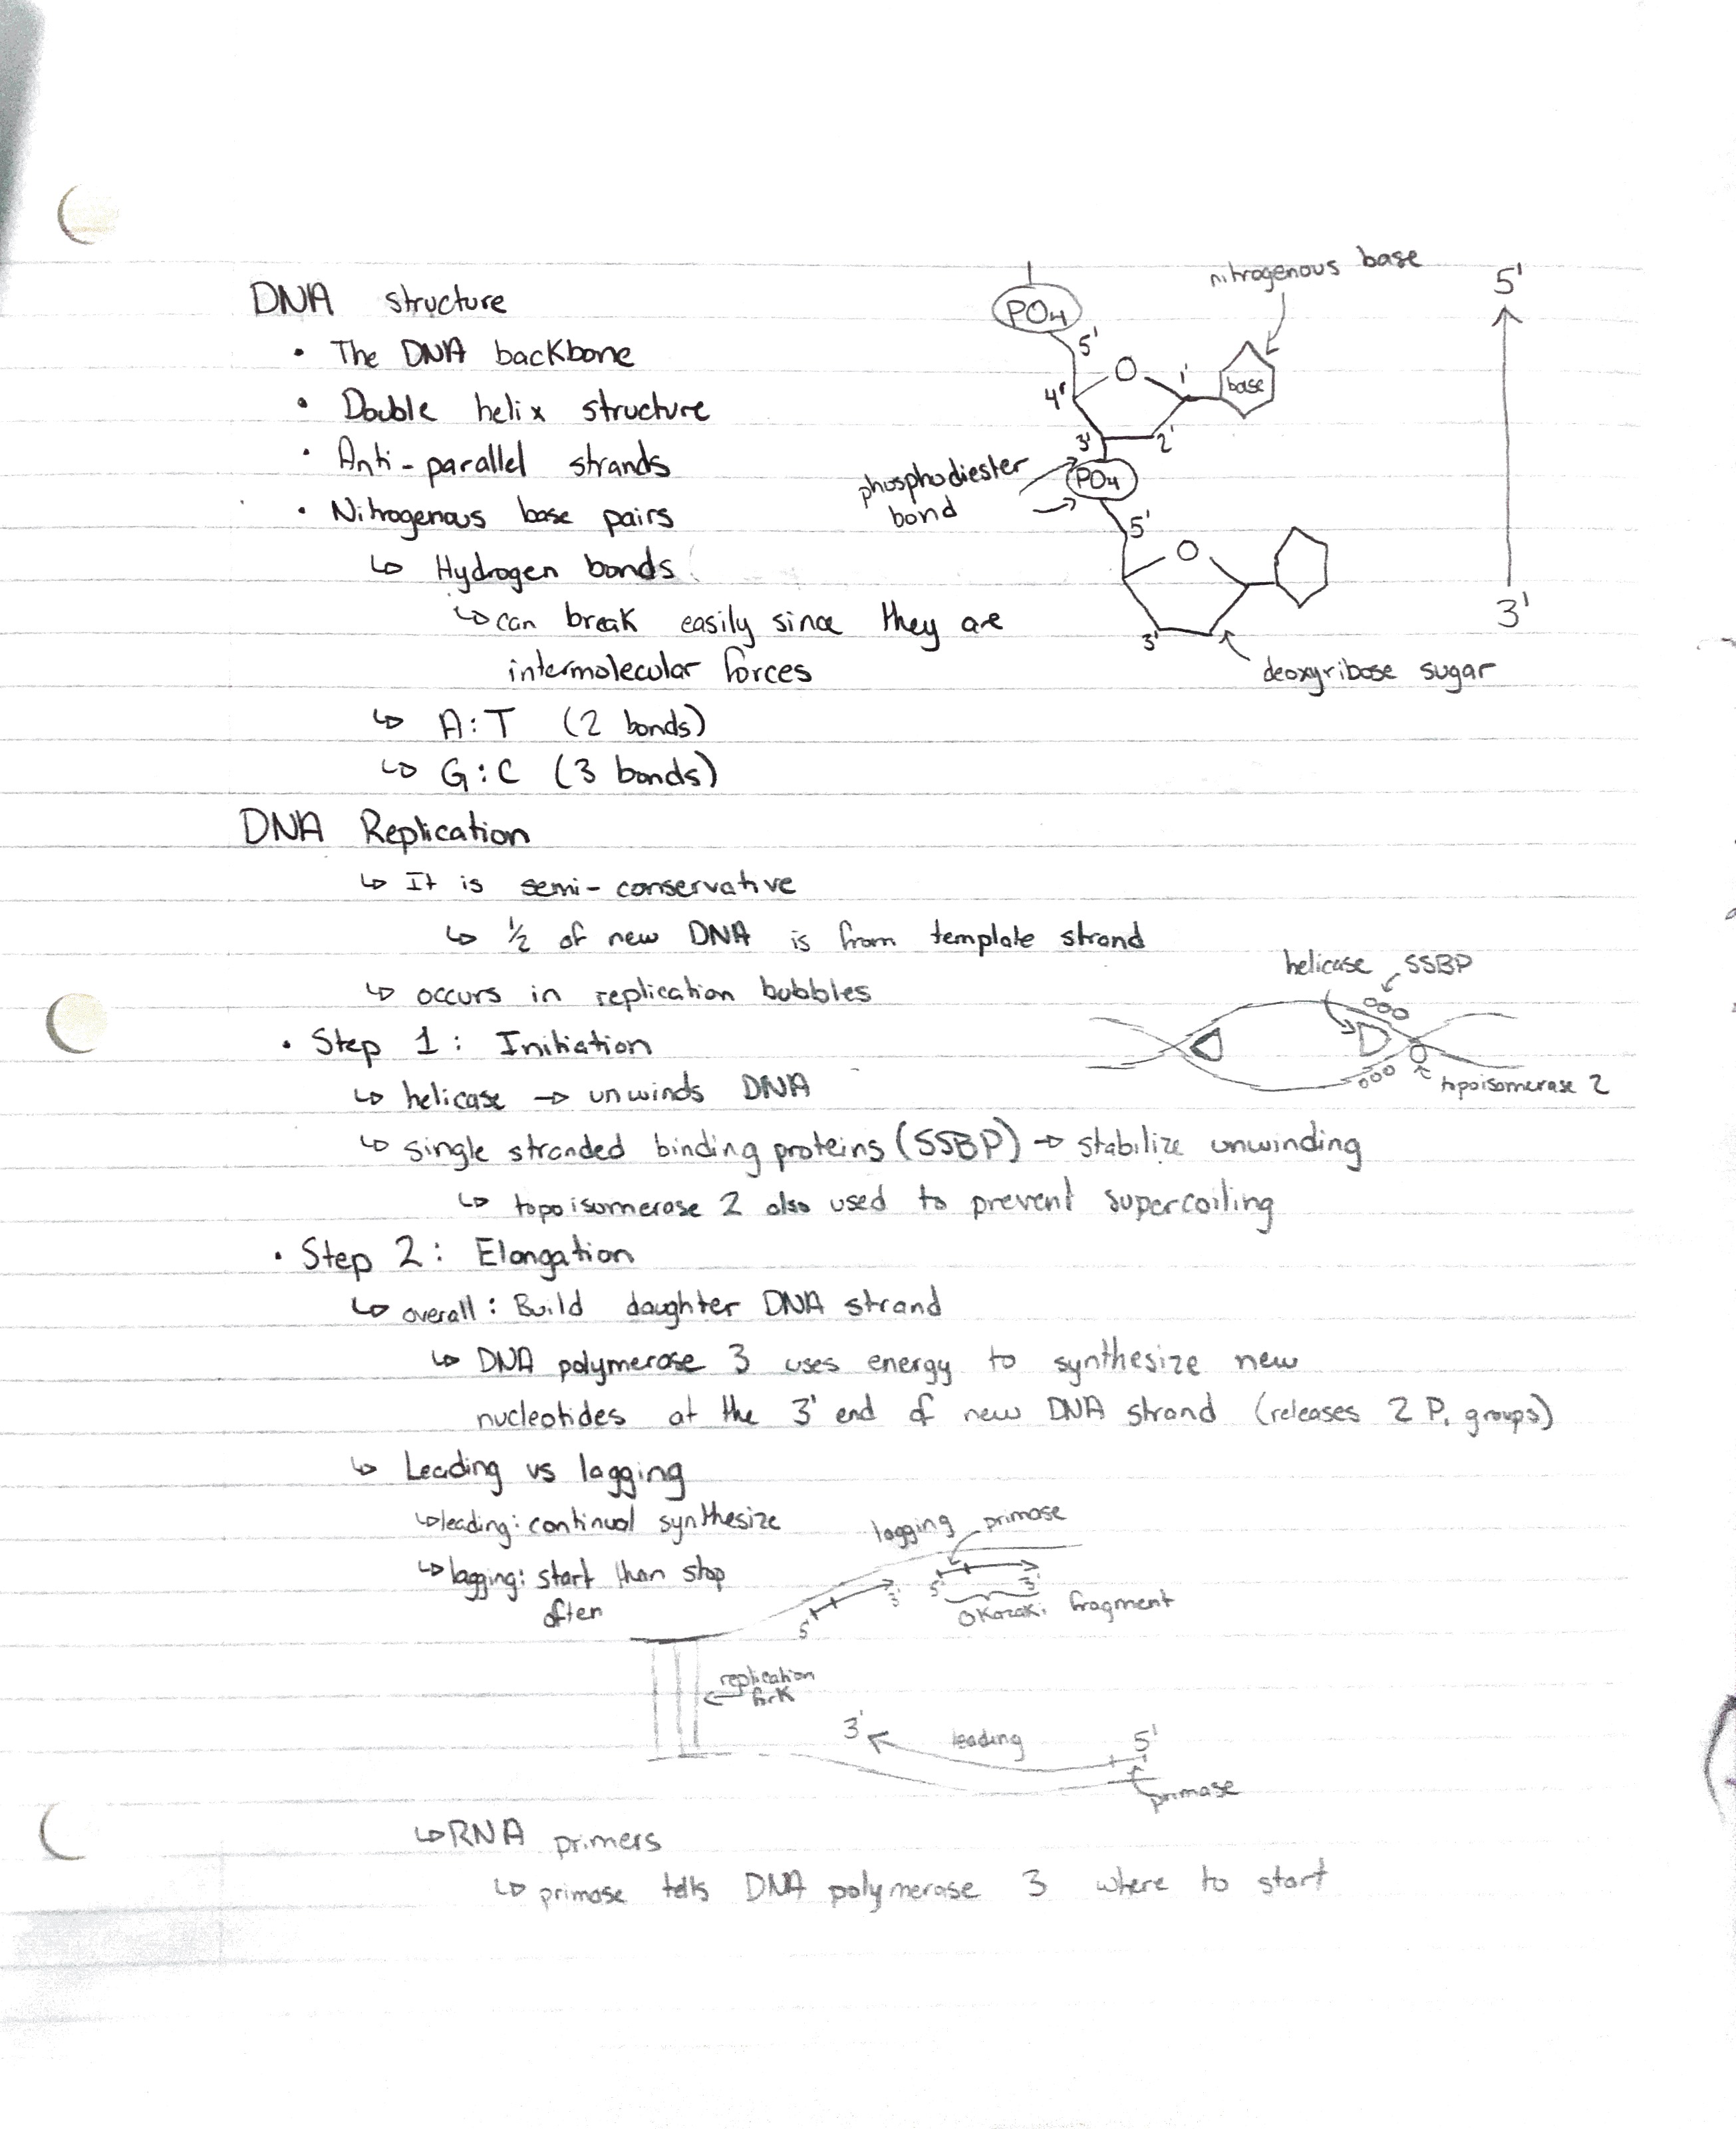 DNA structure
• The DNA backbone
• Double helix structure
• Anti-parallel strands
• Nitrogenous base pairs
↳ Hydrogen bonds
↳ can break easily since they are
intermolecular forces
↳ A:T (2 bonds)
↳ G:C (3 bonds)
nitrogenous base
PO4
5'
O
1'
base
4'
3'
2'
phosphodiester
bond
PO4
5'
O
3'
deoxyribose sugar
5'
3'
DNA Replication
↳ It is semi-conservative
↳ 1/2 of new DNA is from template strand
↳ occurs in replication bubbles
helicase SSBP
topoisomerase 2
• Step 1: Initiation
↳ helicase → unwinds DNA
↳ single stranded binding proteins (SSBP) → stabilize unwinding
↳ topoisomerase 2 also used to prevent supercoiling
• Step 2: Elongation
↳ overall: Build daughter DNA strand
↳ DNA polymerase 3 uses energy to synthesize new
nucleotides at the 3' end of new DNA strand (releases 2 Pi groups)
↳ Leading vs lagging
↳ leading: continual synthesize
↳ lagging: start than stop
often
lagging primase
5' 3' 5' 3'
Okazaki fragment
replication
fork
3' leading 5'
primase
↳ RNA primers
↳ primase tells DNA polymerase 3 where to start